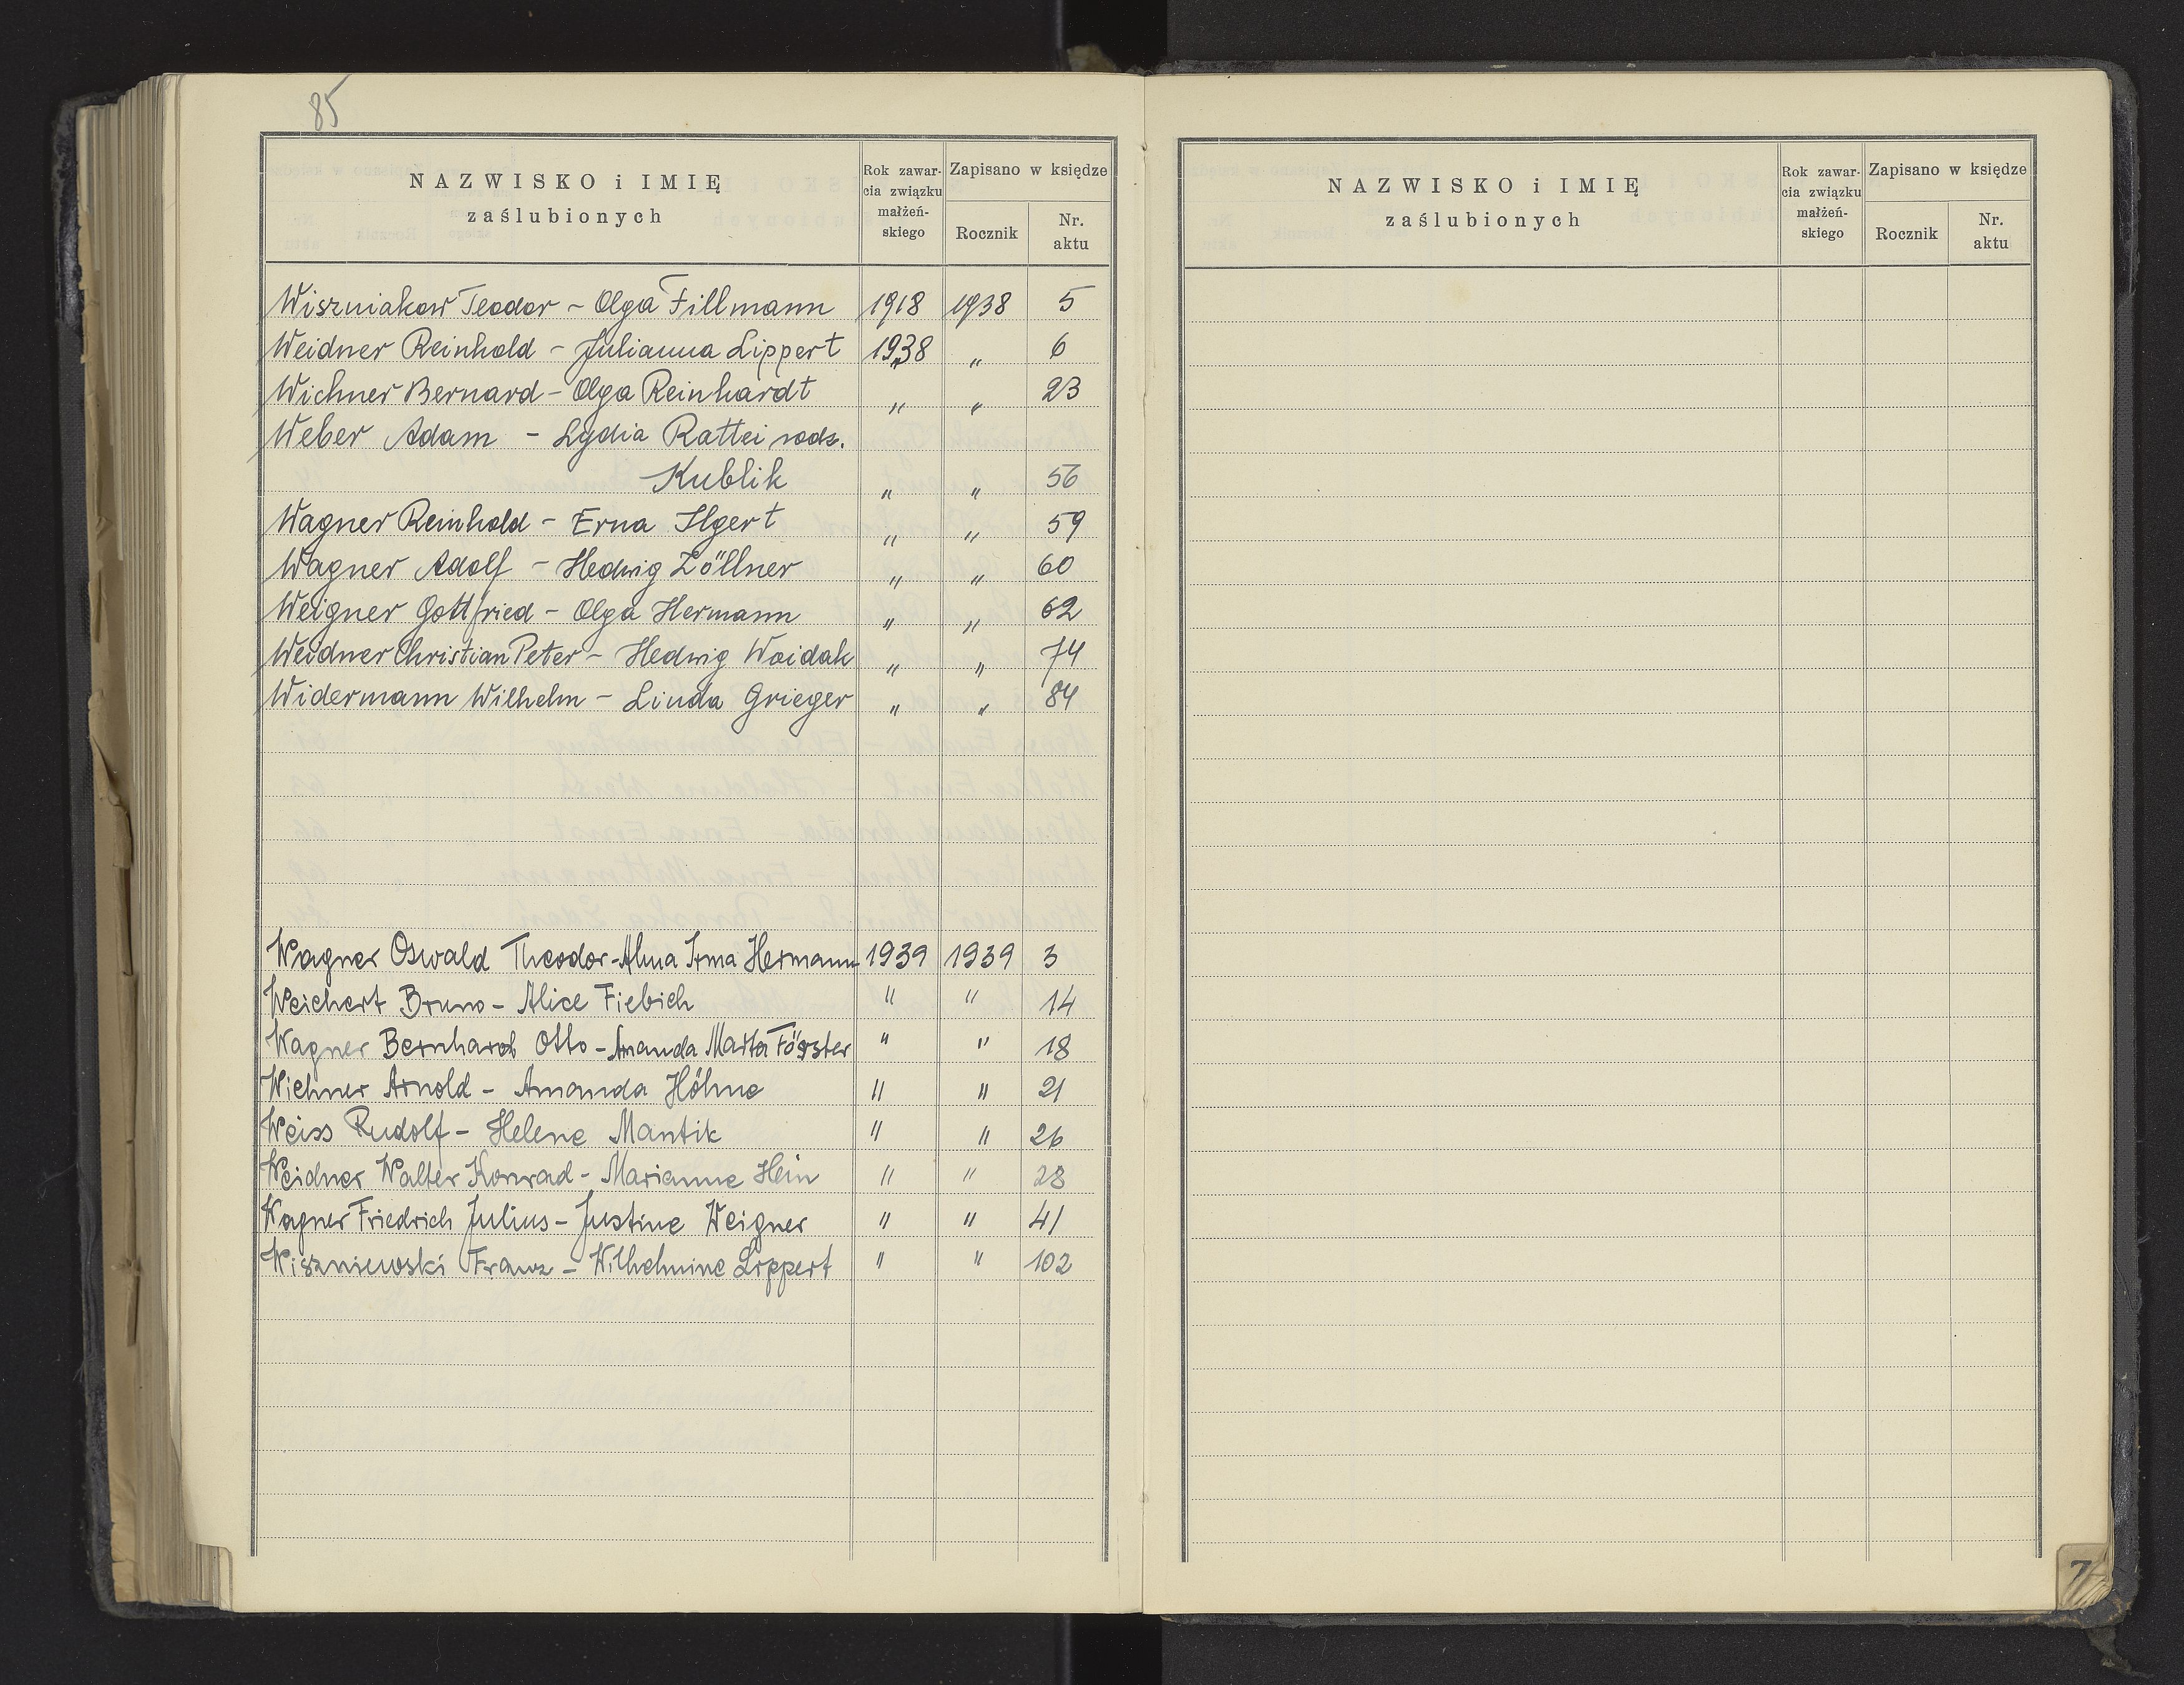 85
NAZWISKO i IMIĘ
zaślubionych
Rok zawar-
cia związku
małżeń-
skiego
Zapisano w księdze
Rocznik
Nr.
aktu
Wiszniakow Teodor - Olga Fillmann 1918 1938 5
Weidner Reinhold - Julianna Lippert 1938 " 6
Wichner Bernard - Olga Reinhardt " " 23
Weber Adam - Lydia Rattei rodz.
Kublik " " 56
Wagner Reinhold - Erna Ilgert " " 59
Wagner Adolf - Hedwig Zöllner " " 60
Weigner Gottfried - Olga Hermann " " 62
Weidner Christian Peter - Hedwig Woidak " " 74
Widermann Wilhelm - Linda Grieger " " 84
Wagner Oswald Theodor - Alma Irma Hermann 1939 1939 3
Weichert Bruno - Alice Fiebich " " 14
Wagner Bernhard Otto - Amanda Marta Förster " " 18
Wichner Arnold - Amanda Höhne " " 21
Weiss Rudolf - Helene Mantik " " 26
Weidner Walter Konrad - Marianne Hein " " 28
Wagner Friedrich Julius - Justine Weigner " " 41
Wiszniewski Franz - Wilhelmine Lippert " " 102
NAZWISKO i IMIĘ
zaślubionych
Rok zawar-
cia związku
małżeń-
skiego
Zapisano w księdze
Rocznik
Nr.
aktu